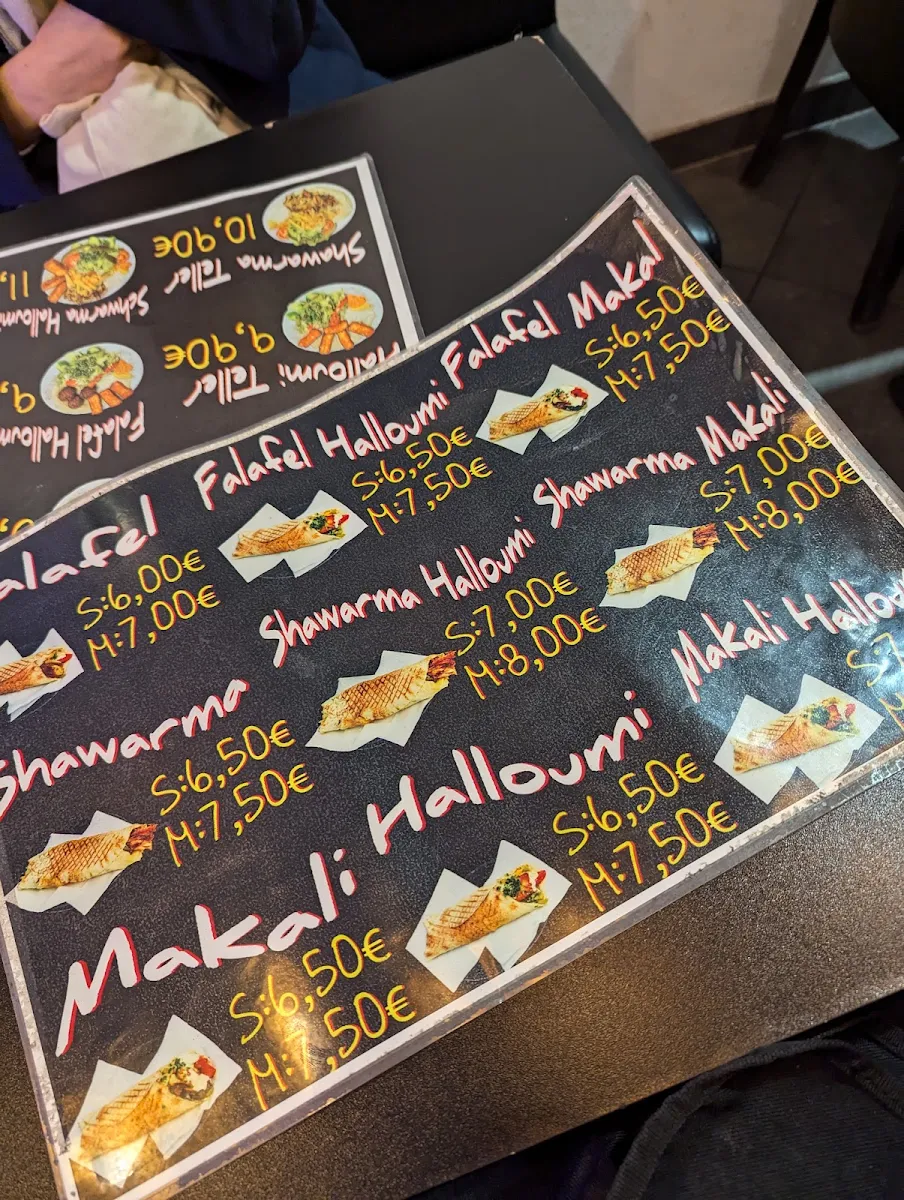 Falafel Halloumi
S:6,50€
M:7,50€
Falafel Makal
S:6,50€
M:7,50€
S:6,00€
M:7,00€
Shawarma Halloumi
S:7,00€
M:8,00€
Shawarma Makali
S:7,00€
M:8,00€
Shawarma
S:6,50€
M:7,50€
Halloumi
S:6,50€
M:7,50€
Makali
S:6,50€
M:7,50€
Makali
Shawarma Teller
10,90€
Halloumi Teller
9,90€
Schwarma Halloumi
11,
Falafel
9,